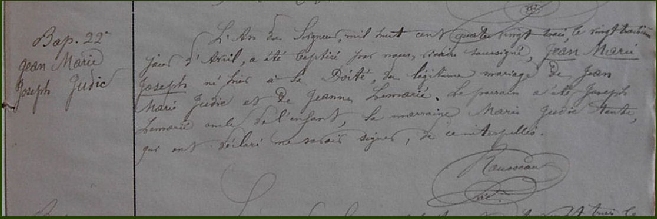 Bap. 22e
Jean Marie
Joseph Judic
L'An du Seigneur, mil huit cent quatre vingt trois, le vingt troisième
jour d'Avril, a été baptisé par nous, vicaire soussigné, Jean Marie
Joseph né hier à la Boité, du légitime mariage de Jean
Marie Judic et de Jeanne Lemarié. Le parrain a été Joseph
Lemarié oncle de l'enfant, la marraine Marie Judic tante,
qui ont déclaré ne savoir signer, de ce interpellés.